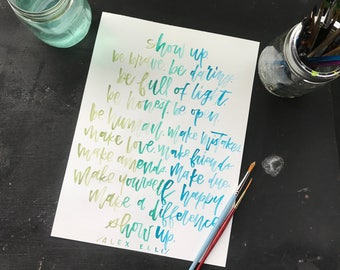 show up
be brave. be daring.
be full of light.
be honest. be open.
be human. make mistakes
make love. make friends
make amends. make art.
make yourself happy
make a difference
show up.
ALEX ELLE